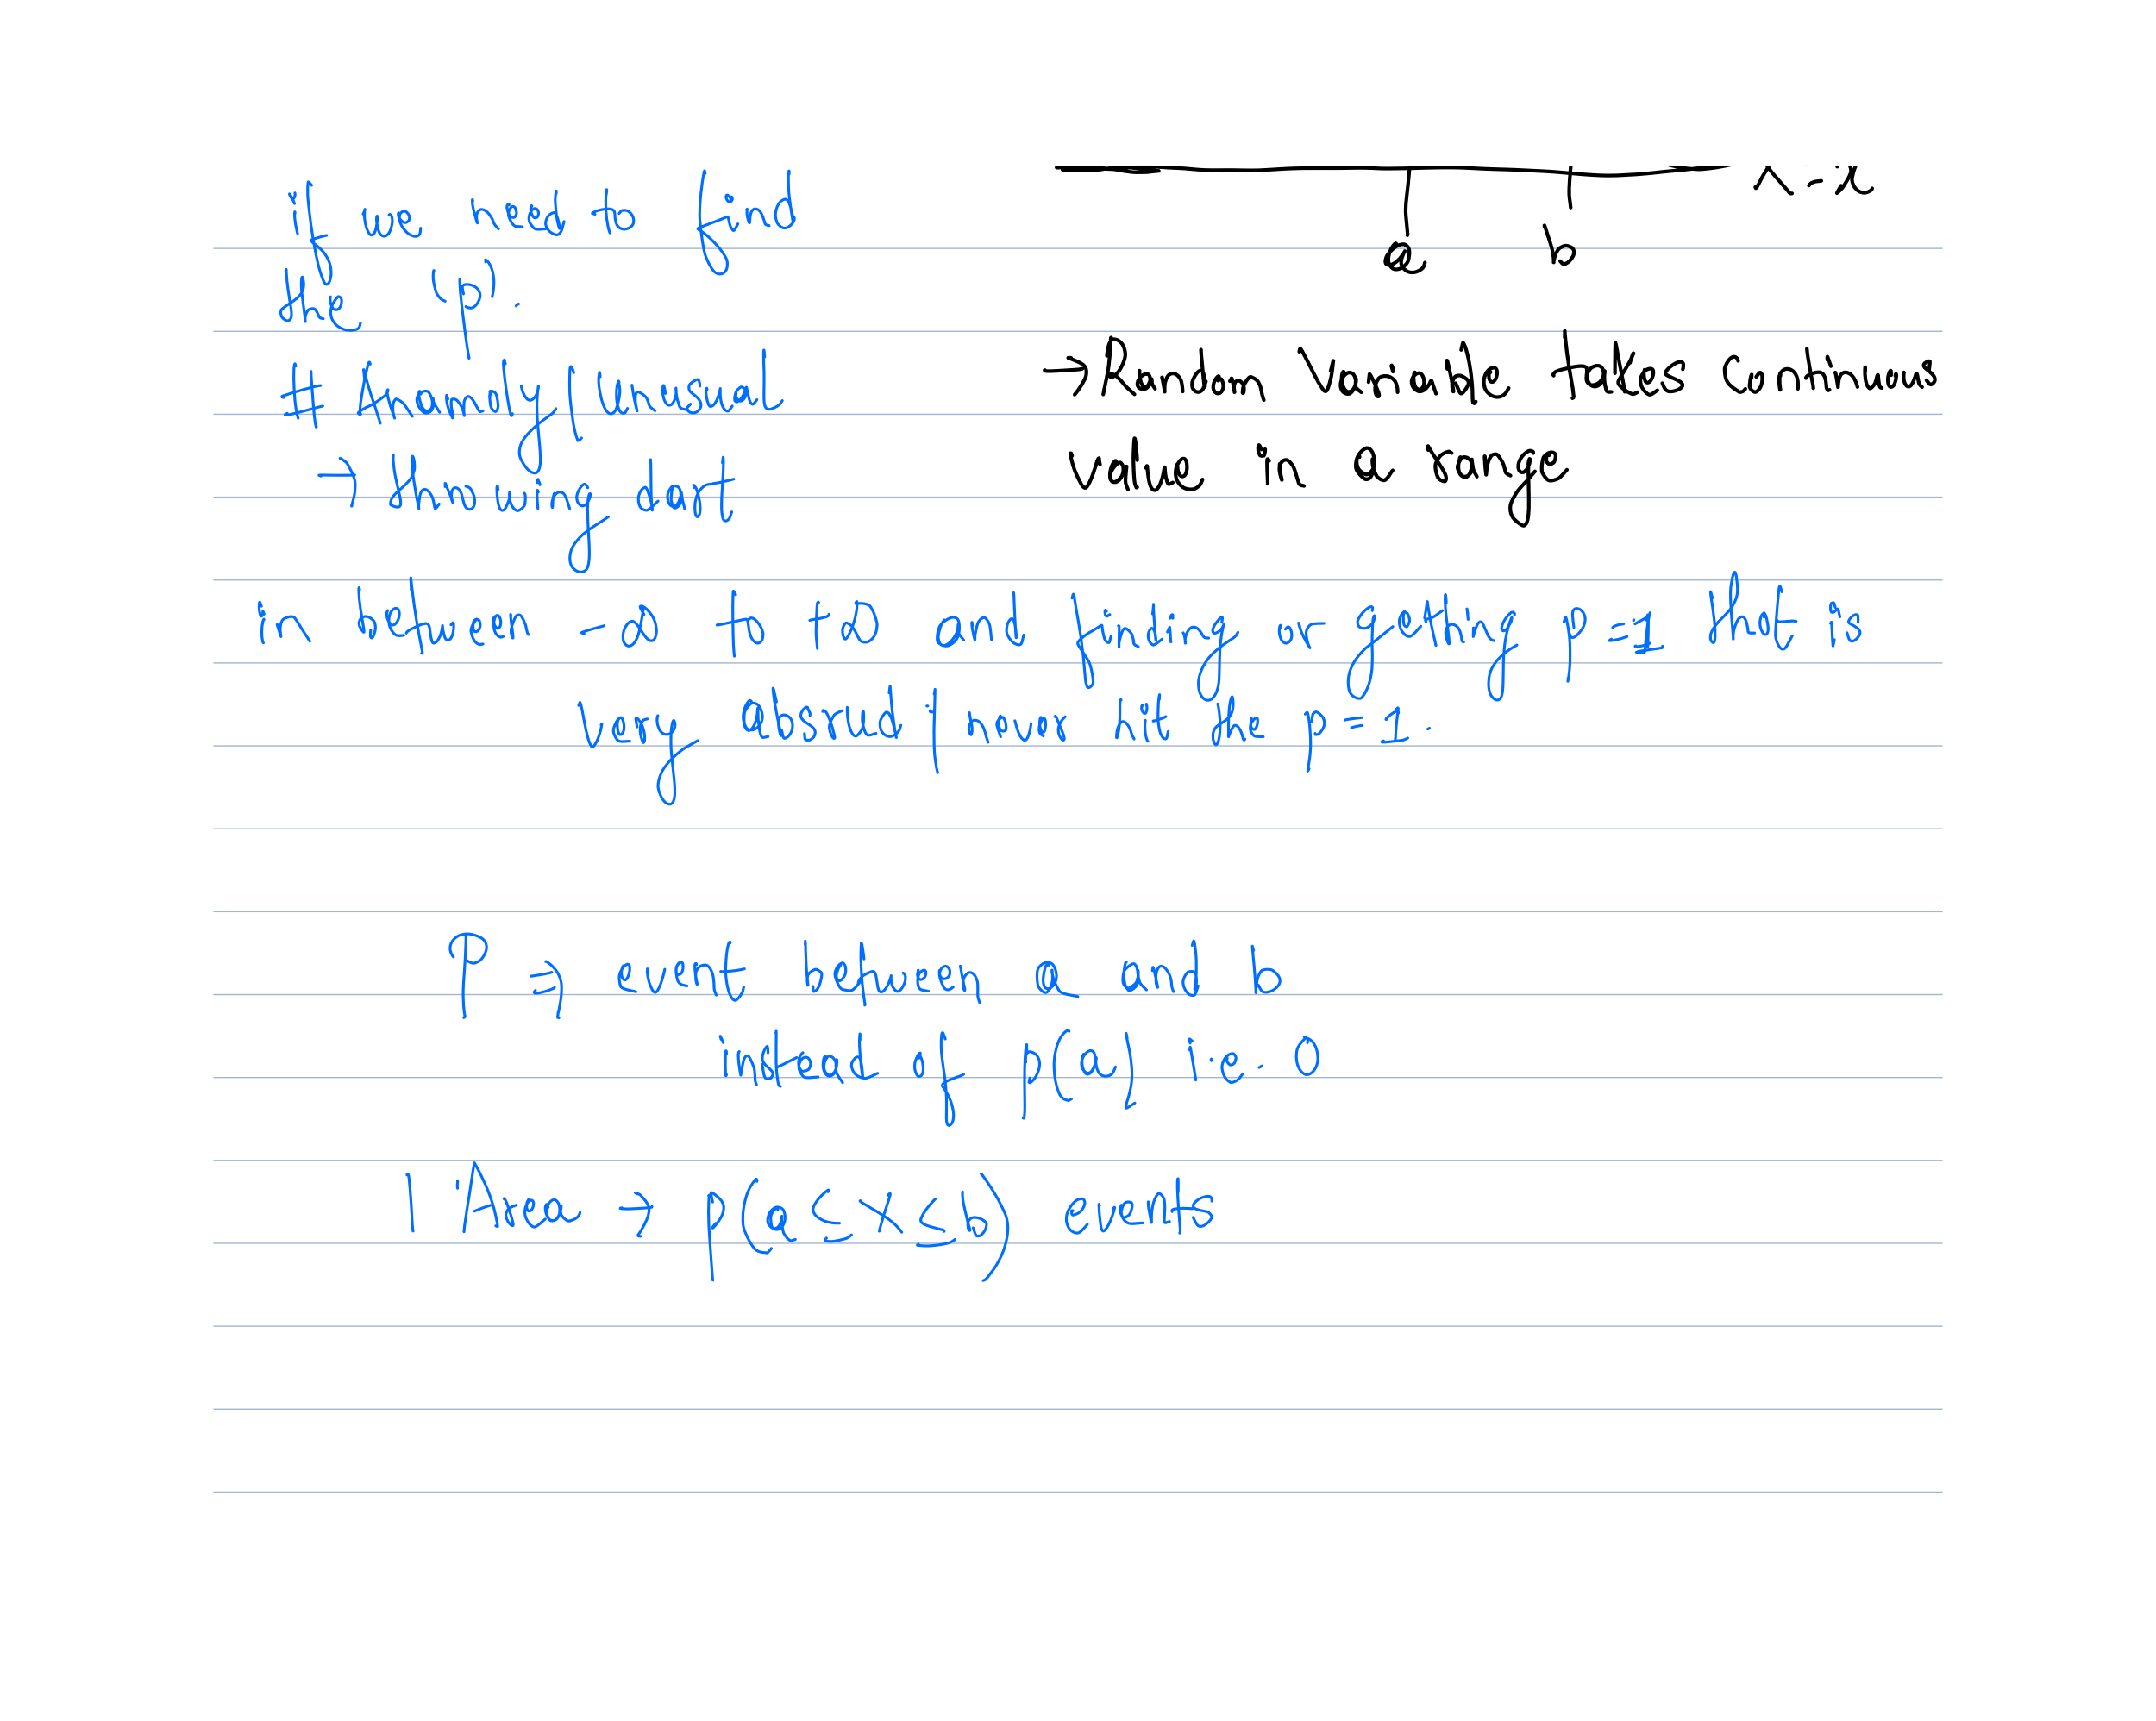 if we need to find
the 'p'.
# Anamolyfunusual
→ throwing dart
X = x
a b
→ Random Variable takes continuous
value in a range
in between -∞ to +∞ and finding or getting p=1 that is
very absurd, never hit for p=1.
P ⇒ event between a and b
instead of p(a) i.e. 0
| 'Area → p(a ≤ X ≤ b) events